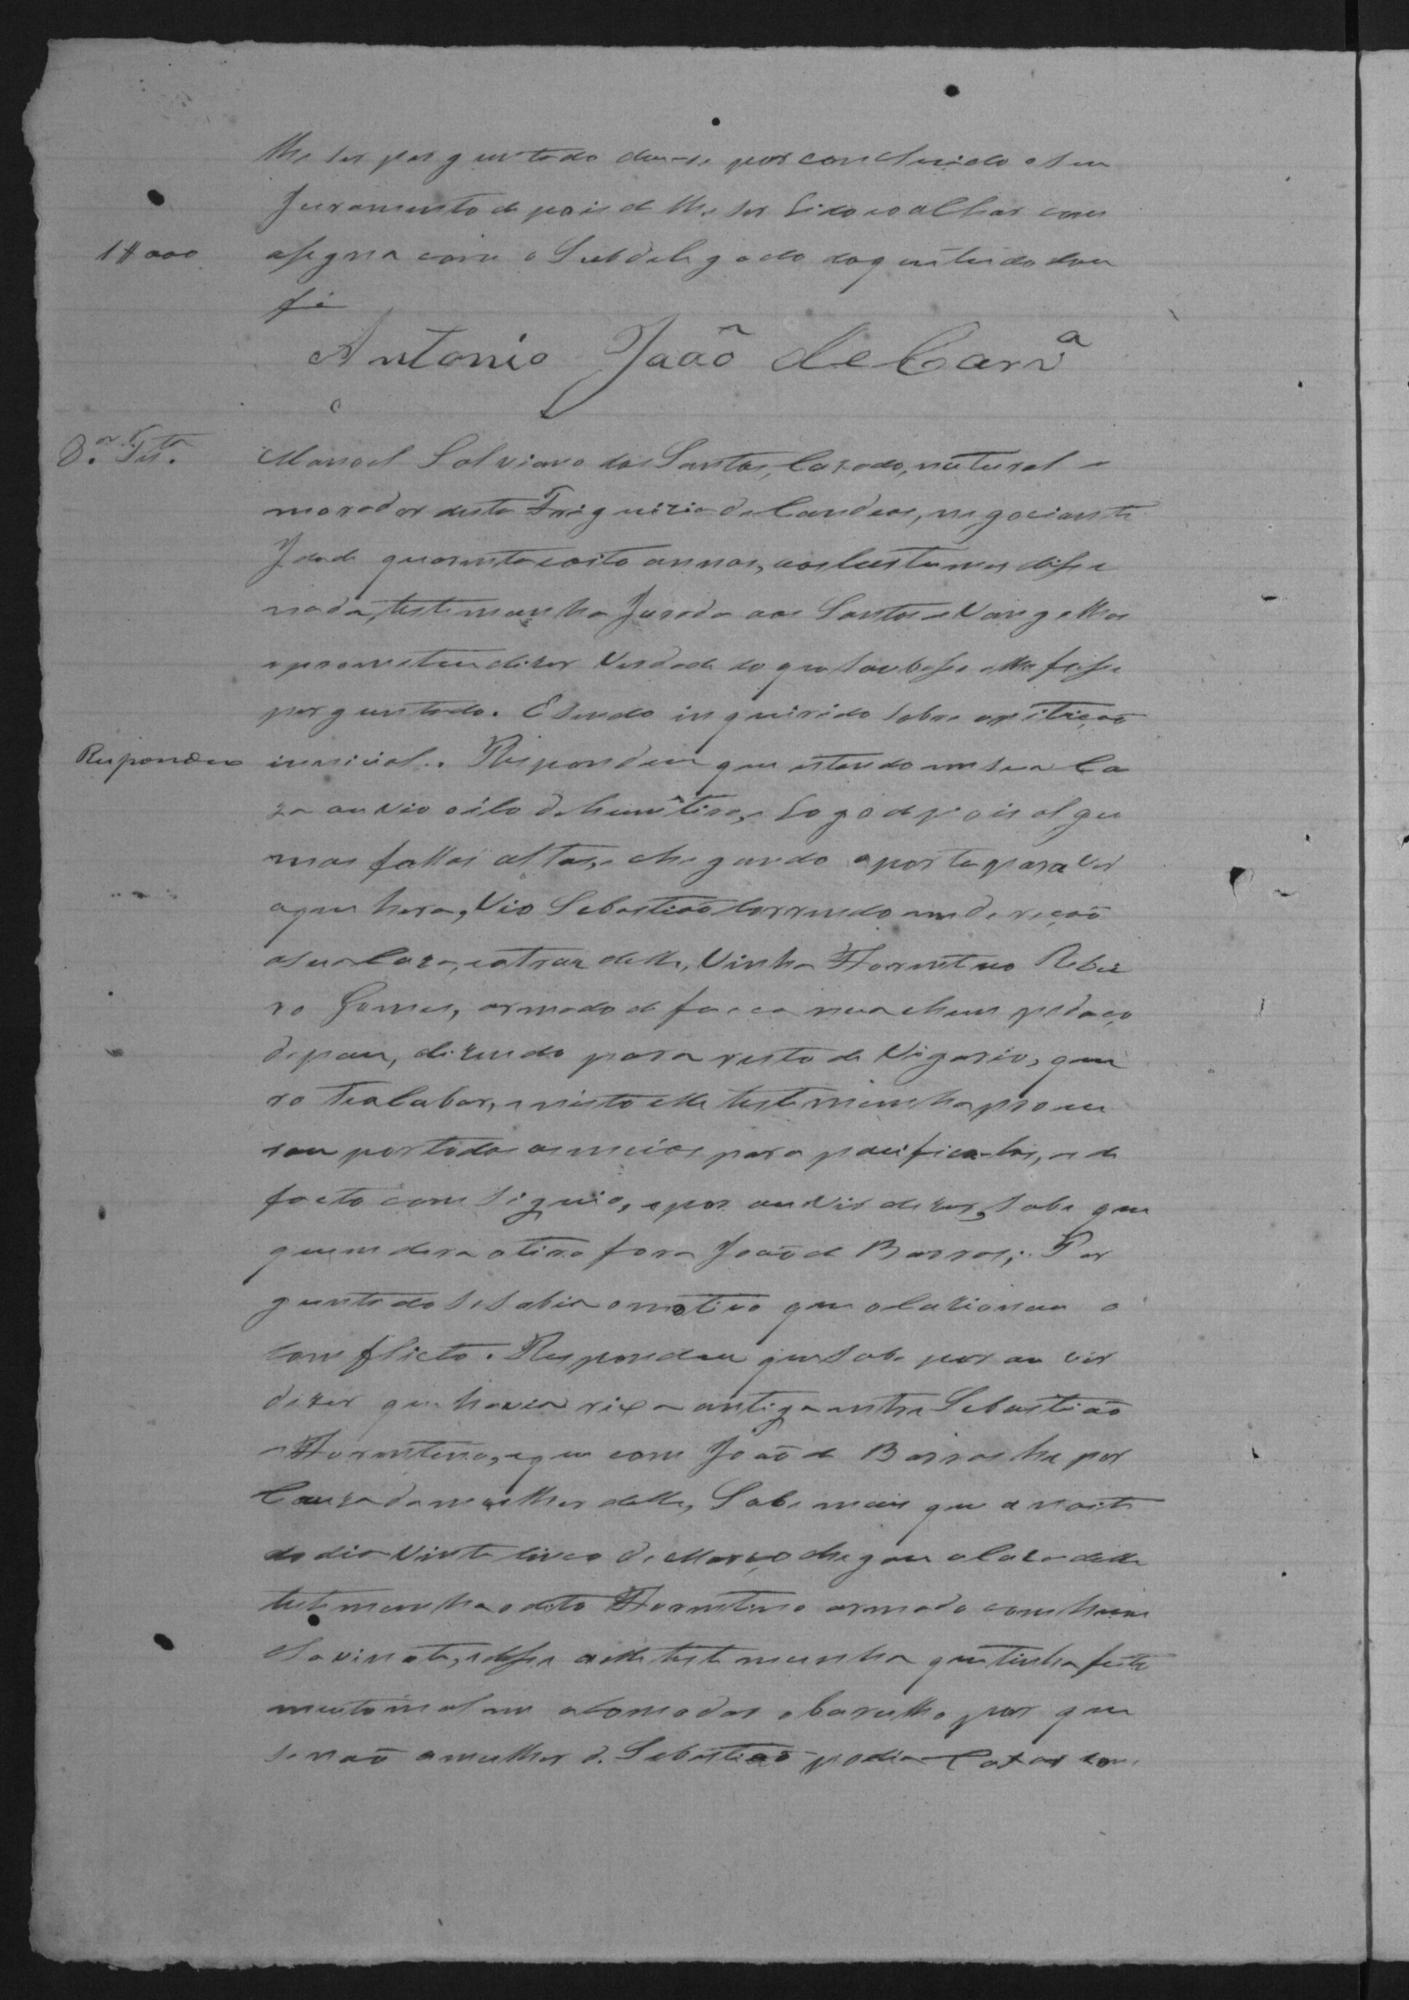 lhe ser perguntado deu-se por concluido o seu
Juramento depois de lhe ser lido e o achar com
1#000 assigna com o Subdelegado do que tudo dou
fé
Antonio Joaõ de Carvª
8.ª Tes.ta Manoel Salviano dos Santos, Cazado, natural e
morador desta Freiguizia de Candeas, negociante
Idade quarenta e oito annos, aos Custumes disse
nada, testemunha Jurada aos Santos e Vangelhos
e prometeu dizer Verdade do que soubesse e lhe fosse
perguntado. E sendo inquirido sobre apitiçaõ
Respondeu innicial. Respondeu que estando em sua Ca
za ouvio oito de hum tiro, e logo depois algu
mas fallas altas, e chegando a porta para ver
o que hera, Vio Sebastiaõ Correndo em direçaõ
a sua Caza, e atraz delle, Vinha Florentino Rebei
ro Gomes, armado de faca nua e hum pedaço
de pau, dizendo para resto de Vigario, que
ro te acabar, e nisto elle testemunha procu
rou por todos os meios para pacifica-los, e de
facto comsiguio, e por ouvir dizer, sabe que
quem dera o tiro fora Joaõ de Barros; Per
guntado se sabia o motivo que o lazionou o
Comflicto. Respondeu que sabe por ou vir
dizer que havia rixa antiga entre Sebastiaõ
e Florentino, e que com Joaõ de Barros he por
Cauza da mulher delle, Sabe mais que a noite
do dia Vinte sinco de Março chegou a Caza delle
testemunha o dito Florentino armado com huma
clavinota, e disse a elle testemunha que tinha feito
muito mal em acomodar o barulho por que
se naõ a mulher de Sebastiaõ podia Cazar com